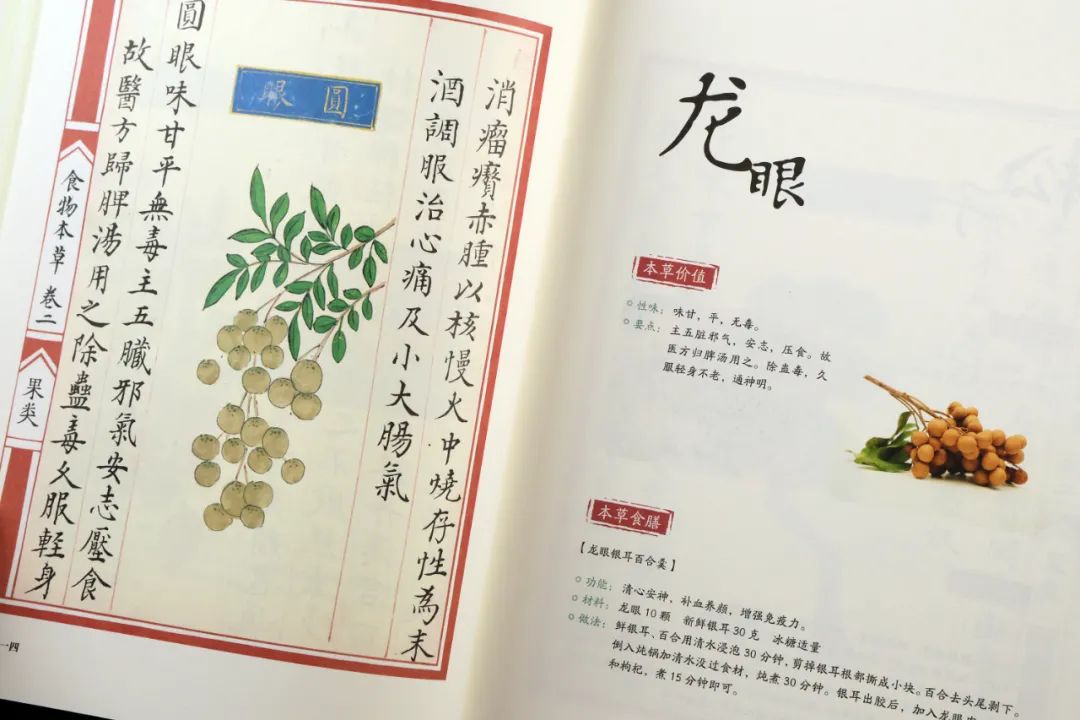 消瘤癪赤腫以核慢火中燒存性為末
酒調服治心痛及小大腸氣
圓眼
圓眼味甘平無毒主五臟邪氣安志壓食
故醫方歸脾湯用之除蠱毒久服輕身
食物本草 卷二
果类
一四
龙眼
本草价值
性味：味甘，平，无毒。
要点：主五脏邪气，安志，压食。故
医方归脾汤用之。除蛊毒，久
服轻身不老，通神明。
本草食膳
【龙眼银耳百合羹】
功能：清心安神，补血养颜，增强免疫力。
材料：龙眼10颗 新鲜银耳30克 冰糖适量
做法：鲜银耳、百合用清水浸泡30分钟，剪掉银耳根部撕成小块。百合去头尾剥下。
倒入炖锅加清水没过食材，炖煮30分钟。银耳出胶后，加入龙眼
和枸杞，煮15分钟即可。